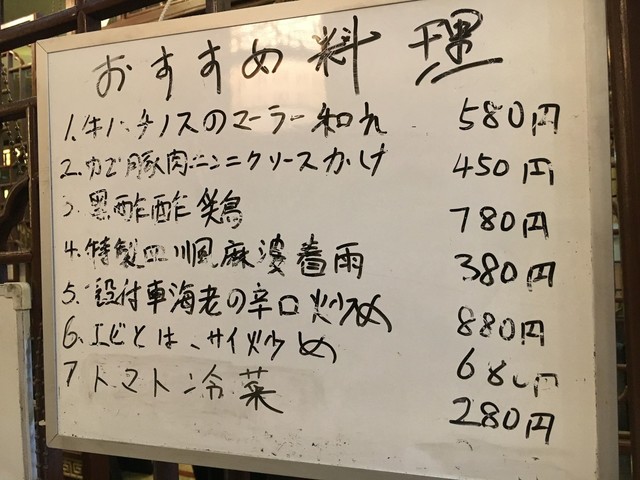 おすすめ料理
1.牛ハチノスのマーラー和れ 580円
2.ゆで豚肉ニンニクソースかけ 450円
3.黒酢酢鶏 780円
4.特製四川風麻婆着雨 380円
5.殻付車海老の辛口炒め 880円
6.エビとはくサイ炒め 680円
7 トマト冷菜 280円